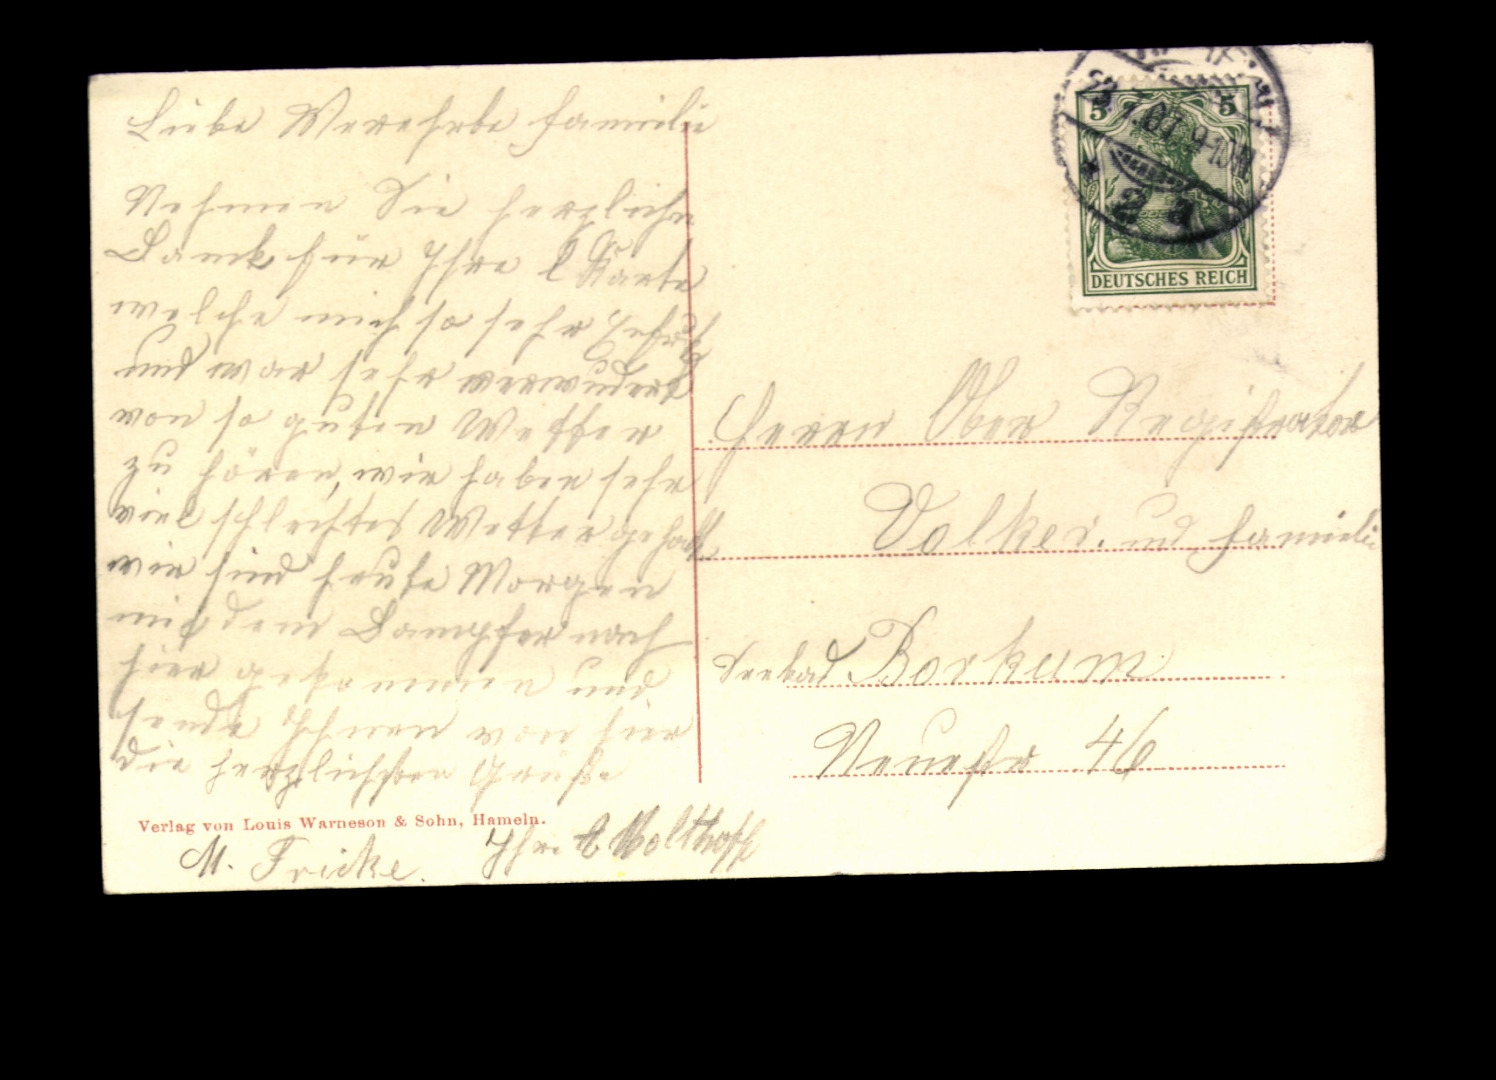 Liebe Werehrte Familie
Nehmen Sie herzliche
Dank für Ihre l Karte
welche mich so sehr gefreut
und war sehr verwudert
von so guten Wetter
zu hören, wir haben sehr
viel schlechtes Wetter gehatt
wir sind heute Morgen
mit dem Dampfer nach
hier gekommen und
sende Ihnen von hier
die herzlichsten Grüße
Verlag von Louis Warneson & Sohn, Hameln.
M. Fricke. Ihr A Molthoff
5 5
7.07. 9-10
* 2 a
DEUTSCHES REICH
Herrn Ober Registrator
Volker. und Familie
Seebad Borkum
Neuestr 46